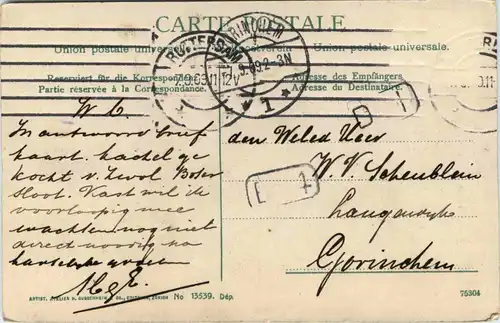 CARTE POSTALE
Union postale universelle. Weltpostverein. Union postale universale.
Reserviert für die Korrespondenz.
Partie réservée à la Correspondance.
Adresse des Empfängers.
Adresse du Destinataire.
ROTTERDAM
GORINCHEM
1
W. L.
In antwoord brief
kaart. kachel ge
kocht v. Bos
Sloot. Kast wil ik
voorloopig mee
wachten nog niet
direct noodig na
hartelijke groeten
den Weled Heer
W. V. Scheublein
Langendijk
Gorinchem
D 1
E 1
No 13539. Dép.
75304